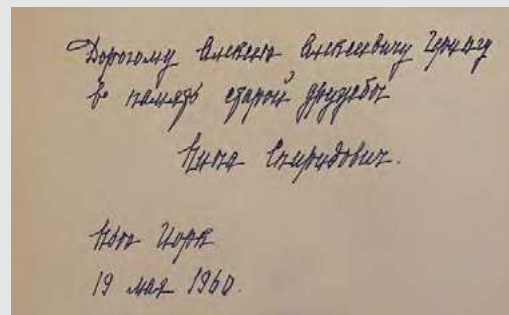 Дорогому Алексею Алексеевичу Герингу
в память старой дружбы
Нина Спиридович.
Нью Иорк
19 мая 1960.